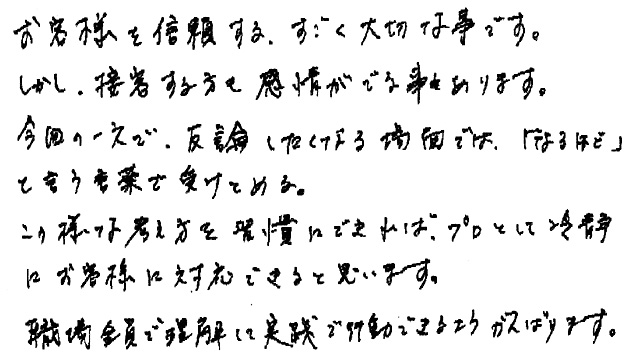 お客様を信頼する、すごく大切な事です。
しかし、接客する方も感情がでる事もあります。
今回の一文で、反論したくなる場面では、「なるほど」
と言う言葉で受けとめる。
この様な考え方を習慣にできれば、プロとして冷静
にお客様に対応できると思います。
職場全員で理解して実践で行動できるようがんばります。